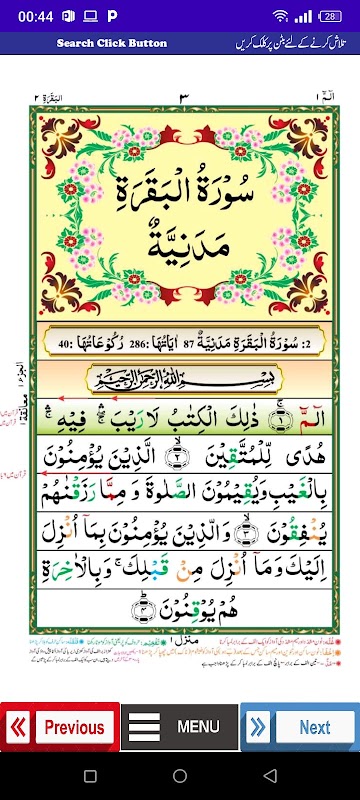 00:44
28
Search Click Button
تلاش کرنے کے لئے بٹن پر کلک کریں
الٓمّٓ ١
٣
البقرة ٢
سُوْرَةُ الْبَقَرَةِ
مَدَنِيَّةٌ
2: سُوْرَةُ الْبَقَرَةِ مَدَنِيَّةٌ 87 اٰيَاتُهَا: 286 رُكُوْعَاتُهَا: 40
بِسْمِ اللّٰهِ الرَّحْمٰنِ الرَّحِيْمِ
الٓمّٓ ۚ﴿١﴾ ذٰلِكَ الْكِتٰبُ لَا رَيْبَ ۛۚ فِيْهِ ۛۚ
هُدًى لِّلْمُتَّقِيْنَ ۙ﴿٢﴾ الَّذِيْنَ يُؤْمِنُوْنَ
بِالْغَيْبِ وَيُقِيْمُوْنَ الصَّلٰوةَ وَ مِمَّا رَزَقْنٰهُمْ
يُنْفِقُوْنَ ۙ﴿٣﴾ وَالَّذِيْنَ يُؤْمِنُوْنَ بِمَاۤ اُنْزِلَ
اِلَيْكَ وَمَاۤ اُنْزِلَ مِنْ قَبْلِكَ ۚ وَبِالْاٰخِرَةِ
هُمْ يُوْقِنُوْنَ ؕ﴿٤﴾
الجزء ١
معانقة ١
منزل ١
Previous
MENU
Next